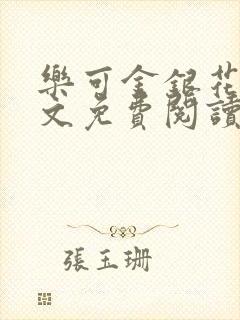 樂可金銀花
文免費閱讀
張玉珊